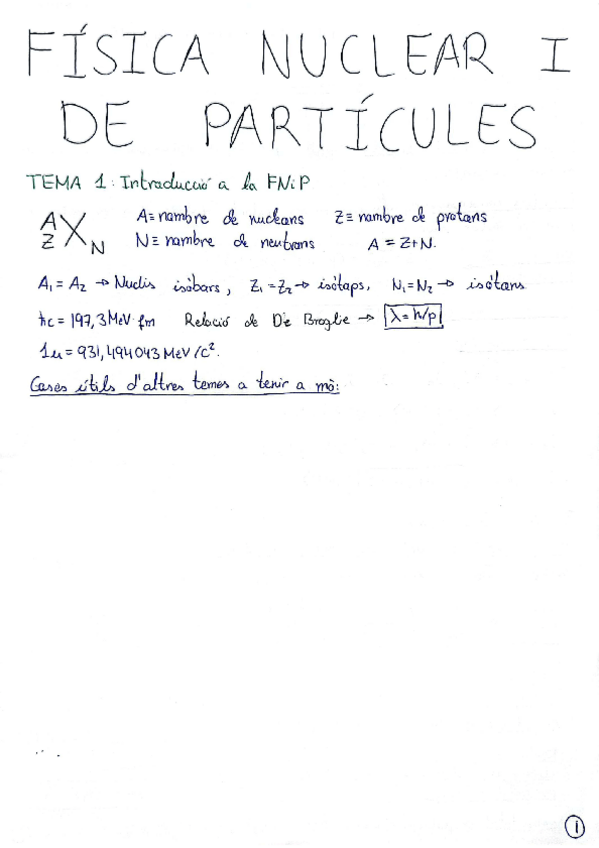 FÍSICA NUCLEAR I
DE PARTÍCULES
TEMA 1: Introducció a la FNiP
A Z X N A≡nombre de nucleons Z≡nombre de protons
N≡nombre de neutrons A = Z+N.
A₁ = A₂ → Nuclis isòbars, Z₁ = Z₂ → isòtops, N₁ = N₂ → isòtons
ħc = 197,3 MeV·fm Relació de De Broglie → λ = h/p
1u = 931,494043 MeV/c².
Coses útils d'altres temes a tenir a mò:
1